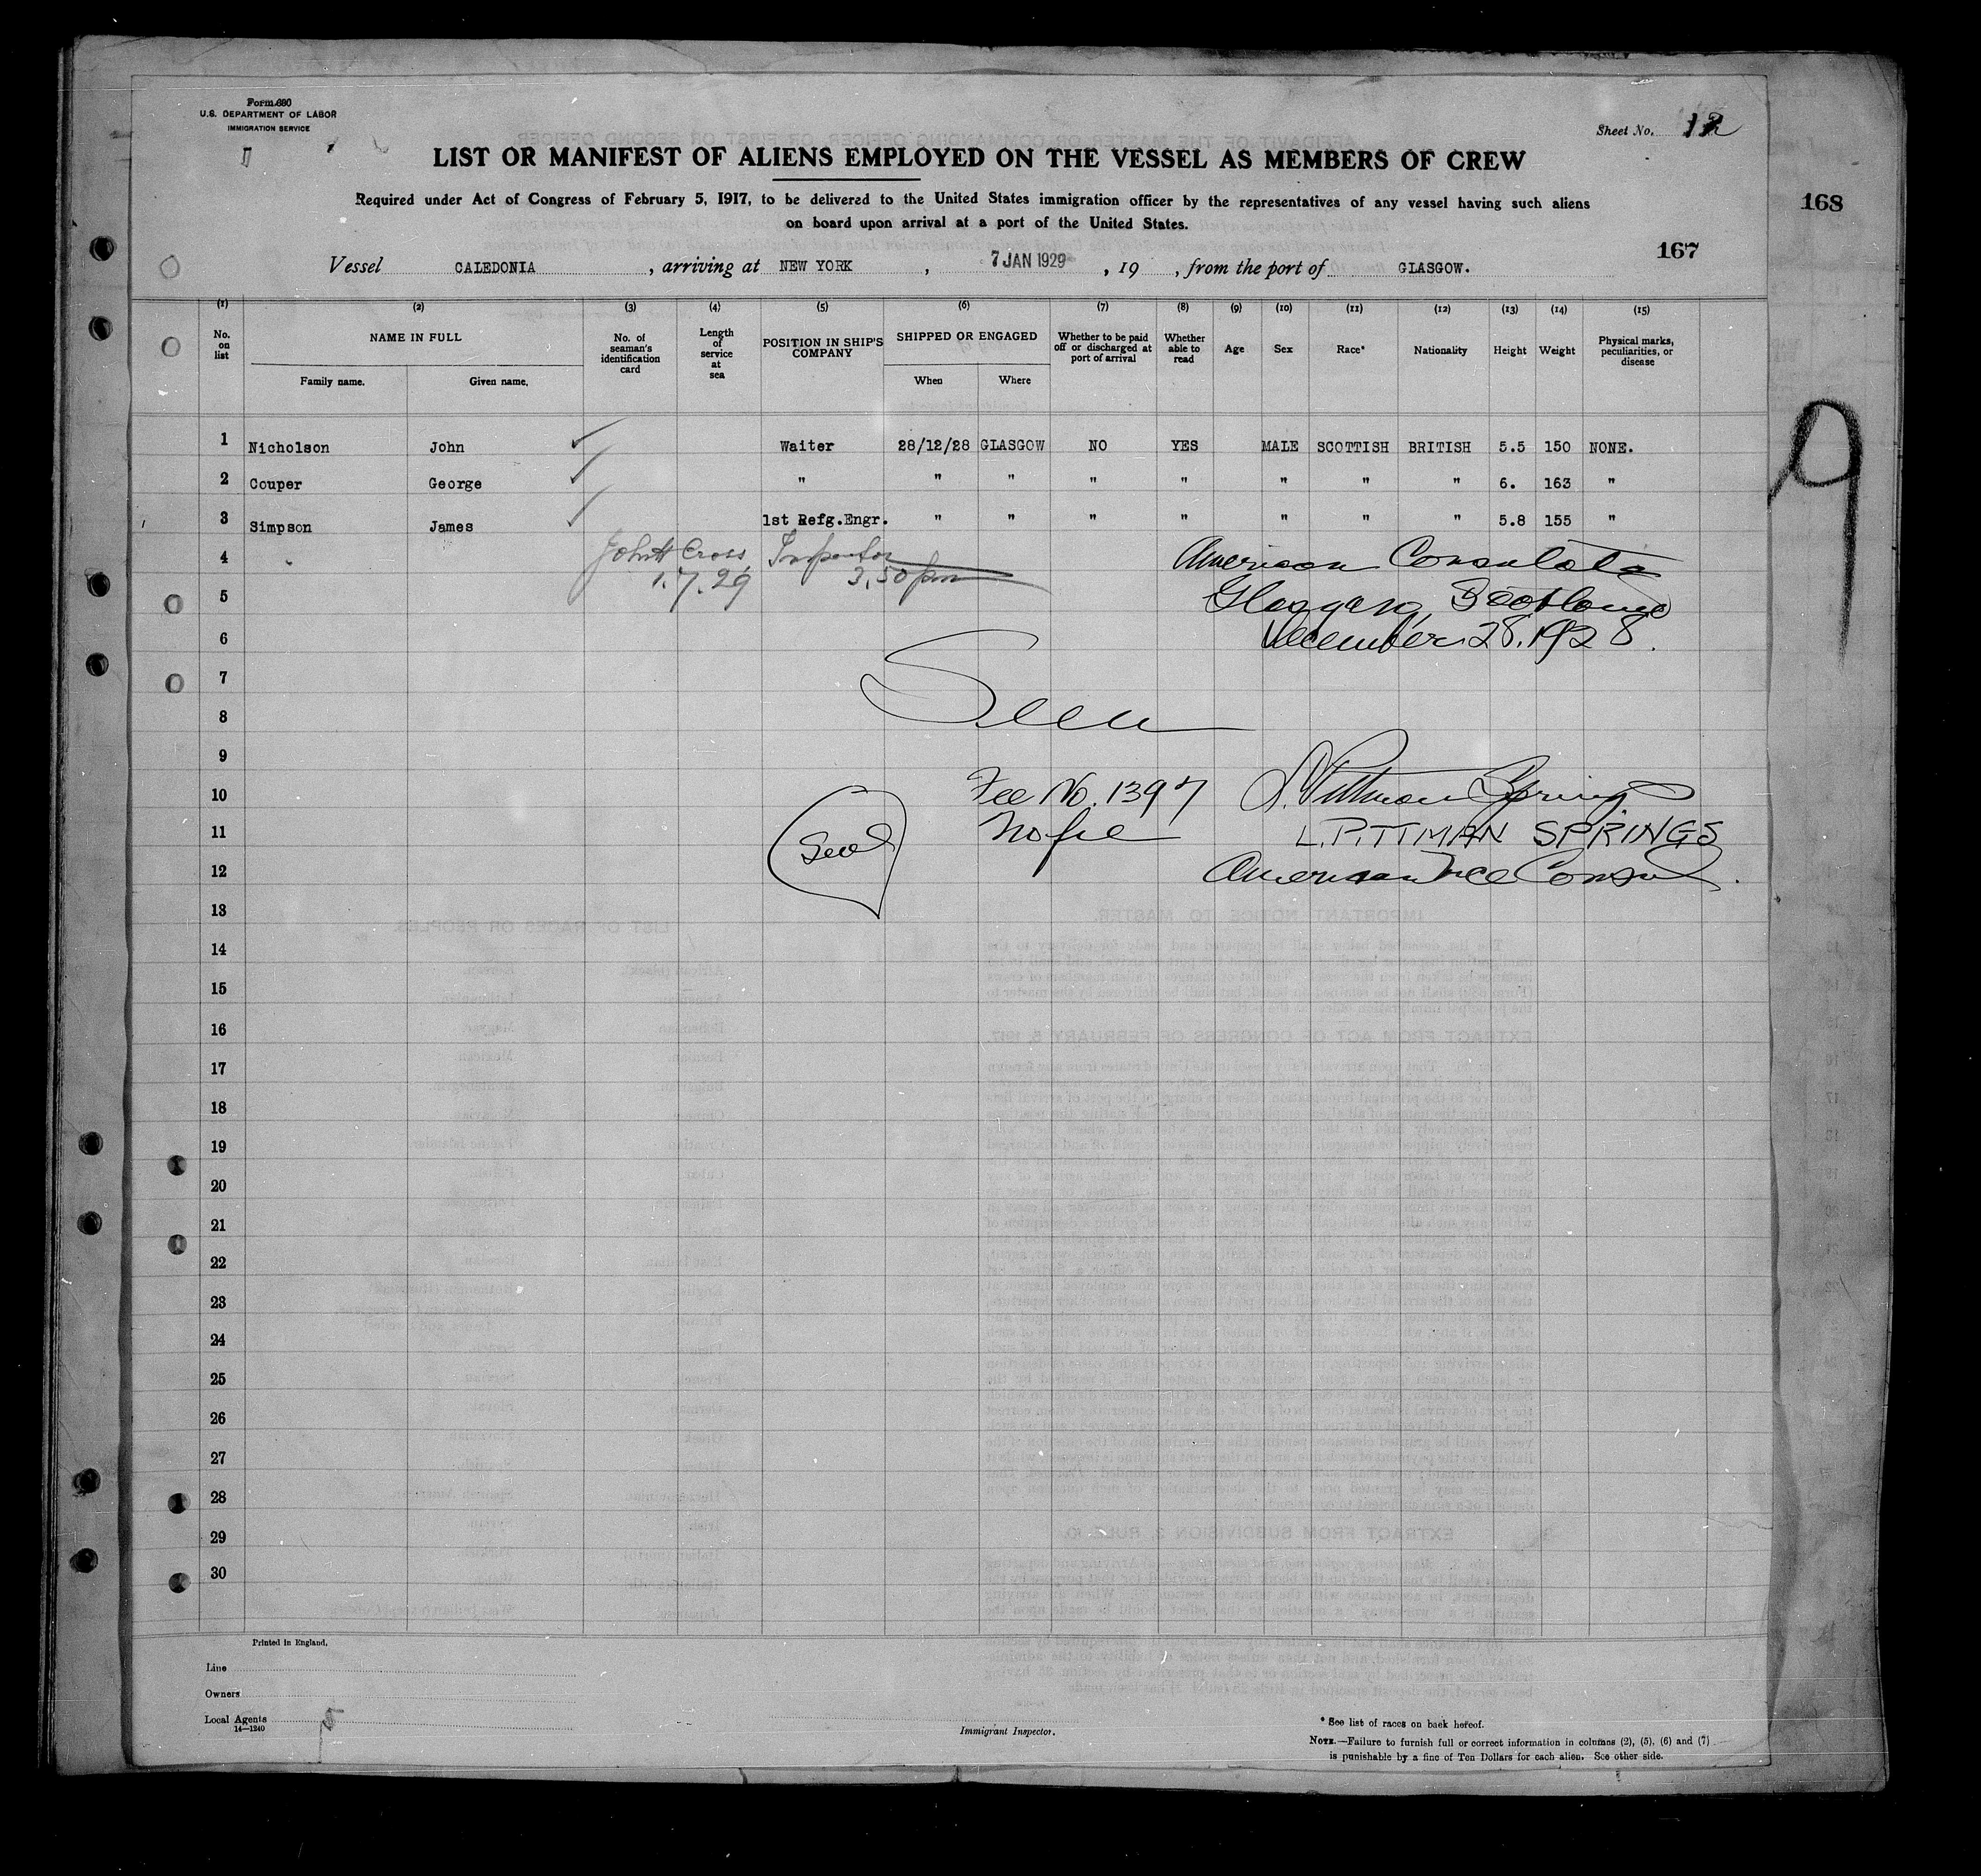 Form 680
U.S. DEPARTMENT OF LABOR
IMMIGRATION SERVICE
Sheet No. 12
LIST OR MANIFEST OF ALIENS EMPLOYED ON THE VESSEL AS MEMBERS OF CREW
Required under Act of Congress of February 5, 1917, to be delivered to the United States immigration officer by the representatives of any vessel having such aliens
on board upon arrival at a port of the United States.
168
167
Vessel CALEDONIA , arriving at NEW YORK , 7 JAN 1929 , 19 , from the port of GLASGOW.
(1) (2) (3) (4) (5) (6) (7) (8) (9) (10) (11) (12) (13) (14) (15)
No. on list NAME IN FULL Family name. Given name. No. of seaman's identification card Length of service at sea POSITION IN SHIP'S COMPANY SHIPPED OR ENGAGED When Where Whether to be paid off or discharged at port of arrival Whether able to read Age Sex Race* Nationality Height Weight Physical marks, peculiarities, or disease
1 Nicholson John Waiter 28/12/28 GLASGOW NO YES MALE SCOTTISH BRITISH 5.5 150 NONE.
2 Couper George " " " " " " " " 6. 163 "
3 Simpson James 1st Refg.Engr. " " " " " " " 5.8 155 "
9
4 John H Cross Inspector American Consulate
1.7.29 3,50 pm
5 Glasgow, Scotland
6 December 28, 1928.
7
8 Seen
9
10 Fee No. 1397 L. Pittman Springs
11 Seal No fee L. PITTMAN SPRINGS
12 American Vice Consul.
13
14
15
16
17
18
19
20
21
22
23
24
25
26
27
28
29
30
Printed in England.
Line
Owners
Local Agents
14—1240
Immigrant Inspector.
* See list of races on back hereof.
NOTE.—Failure to furnish full or correct information in columns (2), (5), (6) and (7)
is punishable by a fine of Ten Dollars for each alien. See other side.